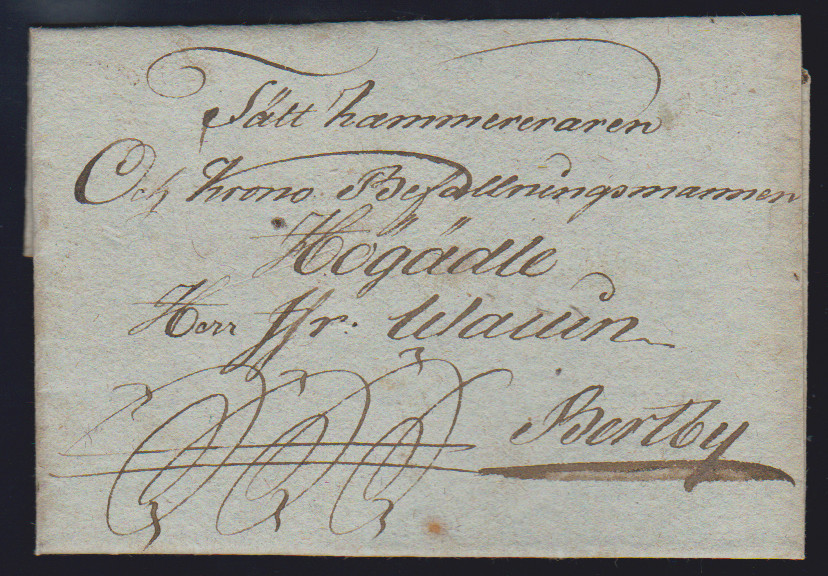 Sätt kammereraren
Och Krono Befallningsmannen
Högädle
Herr Ffr. Wallin
Bertby